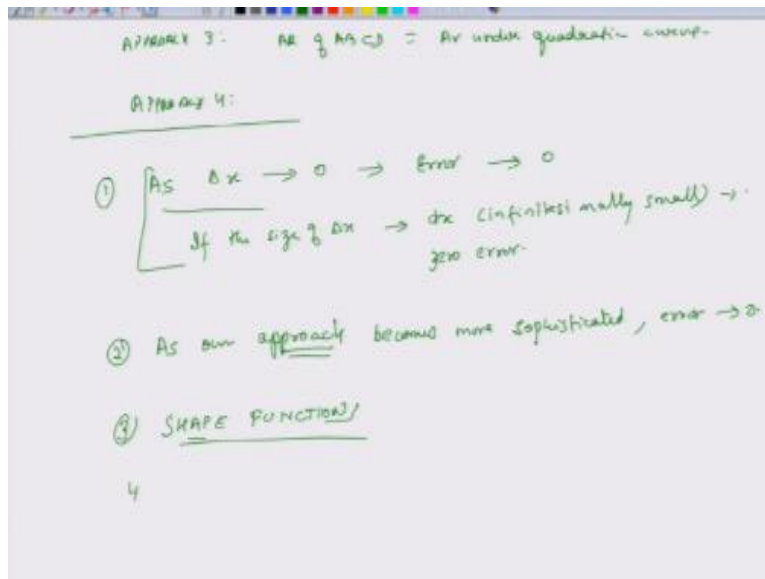 APPROACH 3: AR of ABCD = Ar under quadratic curve.
APPROACH 4:
① As Δx → 0 → Error → 0
If the size of Δx → dx (infinitesimally small) →
zero error.
② As our approach becomes more sophisticated, error → 0
③ SHAPE FUNCTIONS
4